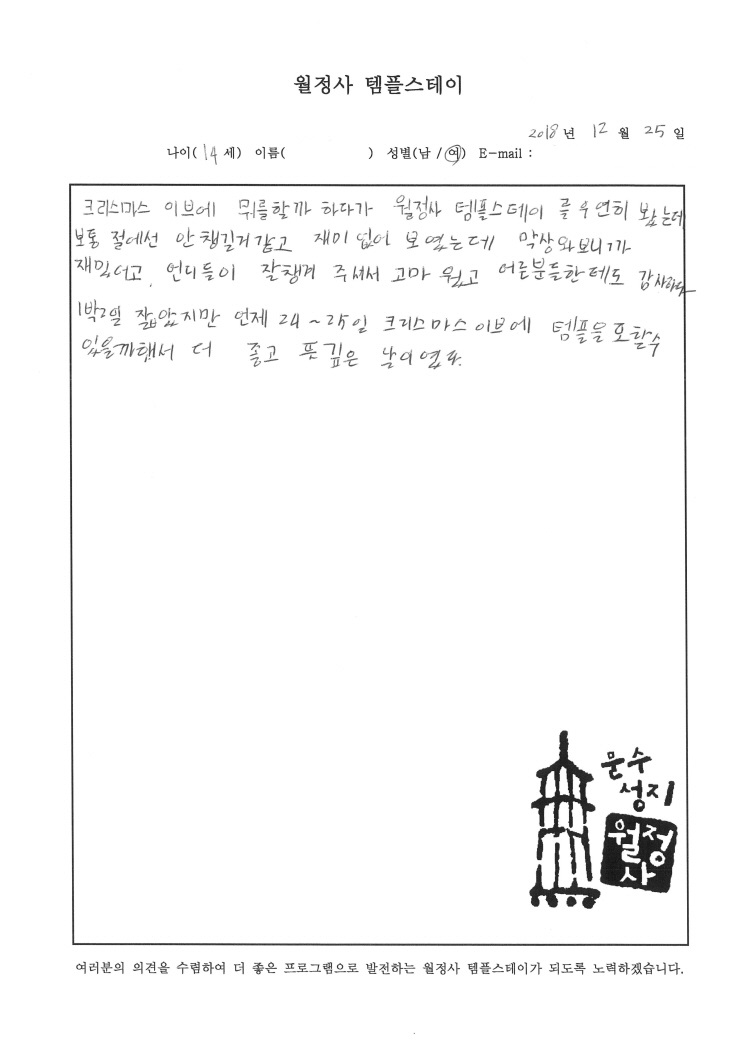 월정사 템플스테이
2018년 12월 25일
나이(14세) 이름( ) 성별(남 / 여) E-mail :
크리스마스 이브에 뭐를할까 하다가 월정사 템플스테이 를 우연히 봤는데
보통 절에선 안챙길거같고 재미 없어 보였는데 막상와보니까
재밌어고, 언니들이 잘챙겨 주셔서 고마 웠고 어른분들한테도 감사하다
1박2일 짧았지만 언제 24~25일 크리스마스 이브에 템플을 또할수
있을까해서 더 좋고 뜻깊은 날이였다.
문수
성지
월정
사
여러분의 의견을 수렴하여 더 좋은 프로그램으로 발전하는 월정사 템플스테이가 되도록 노력하겠습니다.